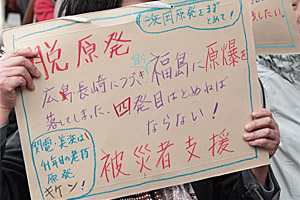 浜岡原発とまず
とめて!
脱原発
広島・長崎につづき福島に原爆を
落してしました。四発目はとめねば
ならない!
関電・美浜は
老朽
原発
キケン!
被災者支援
したい。